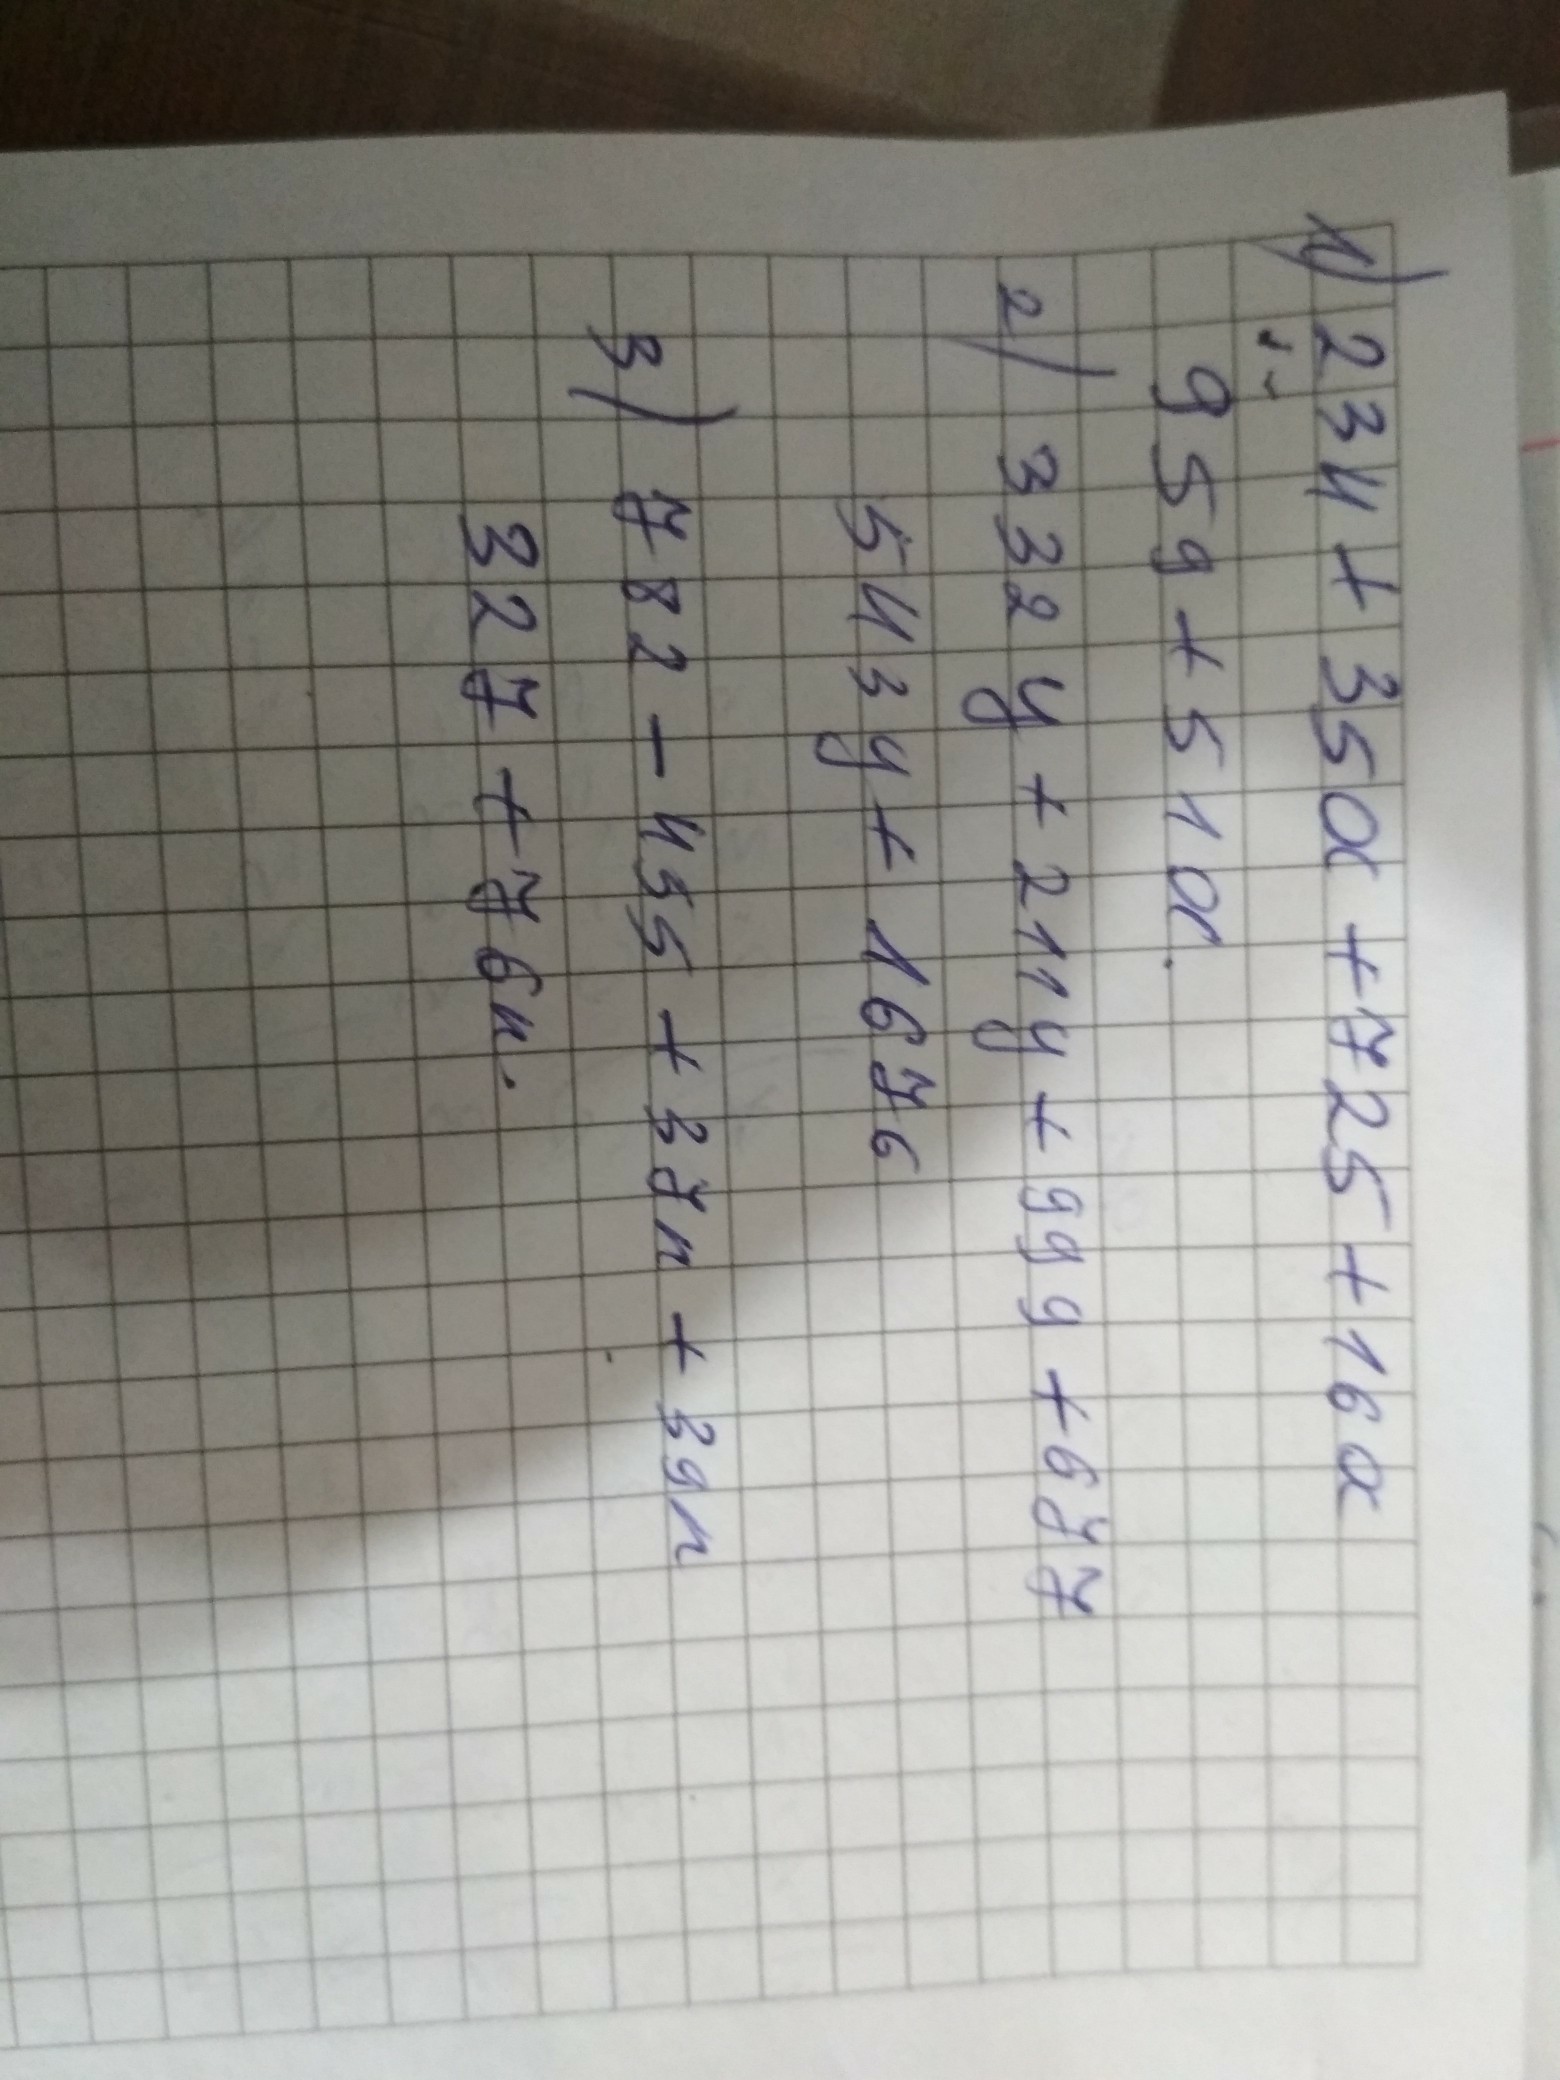 1) 234 + 35a + 725 + 16a
959 + 51a.
2) 332y + 211y + 999 + 677
543y + 1676
3) 782 - 455 + 37n + 39n
327 + 76n.